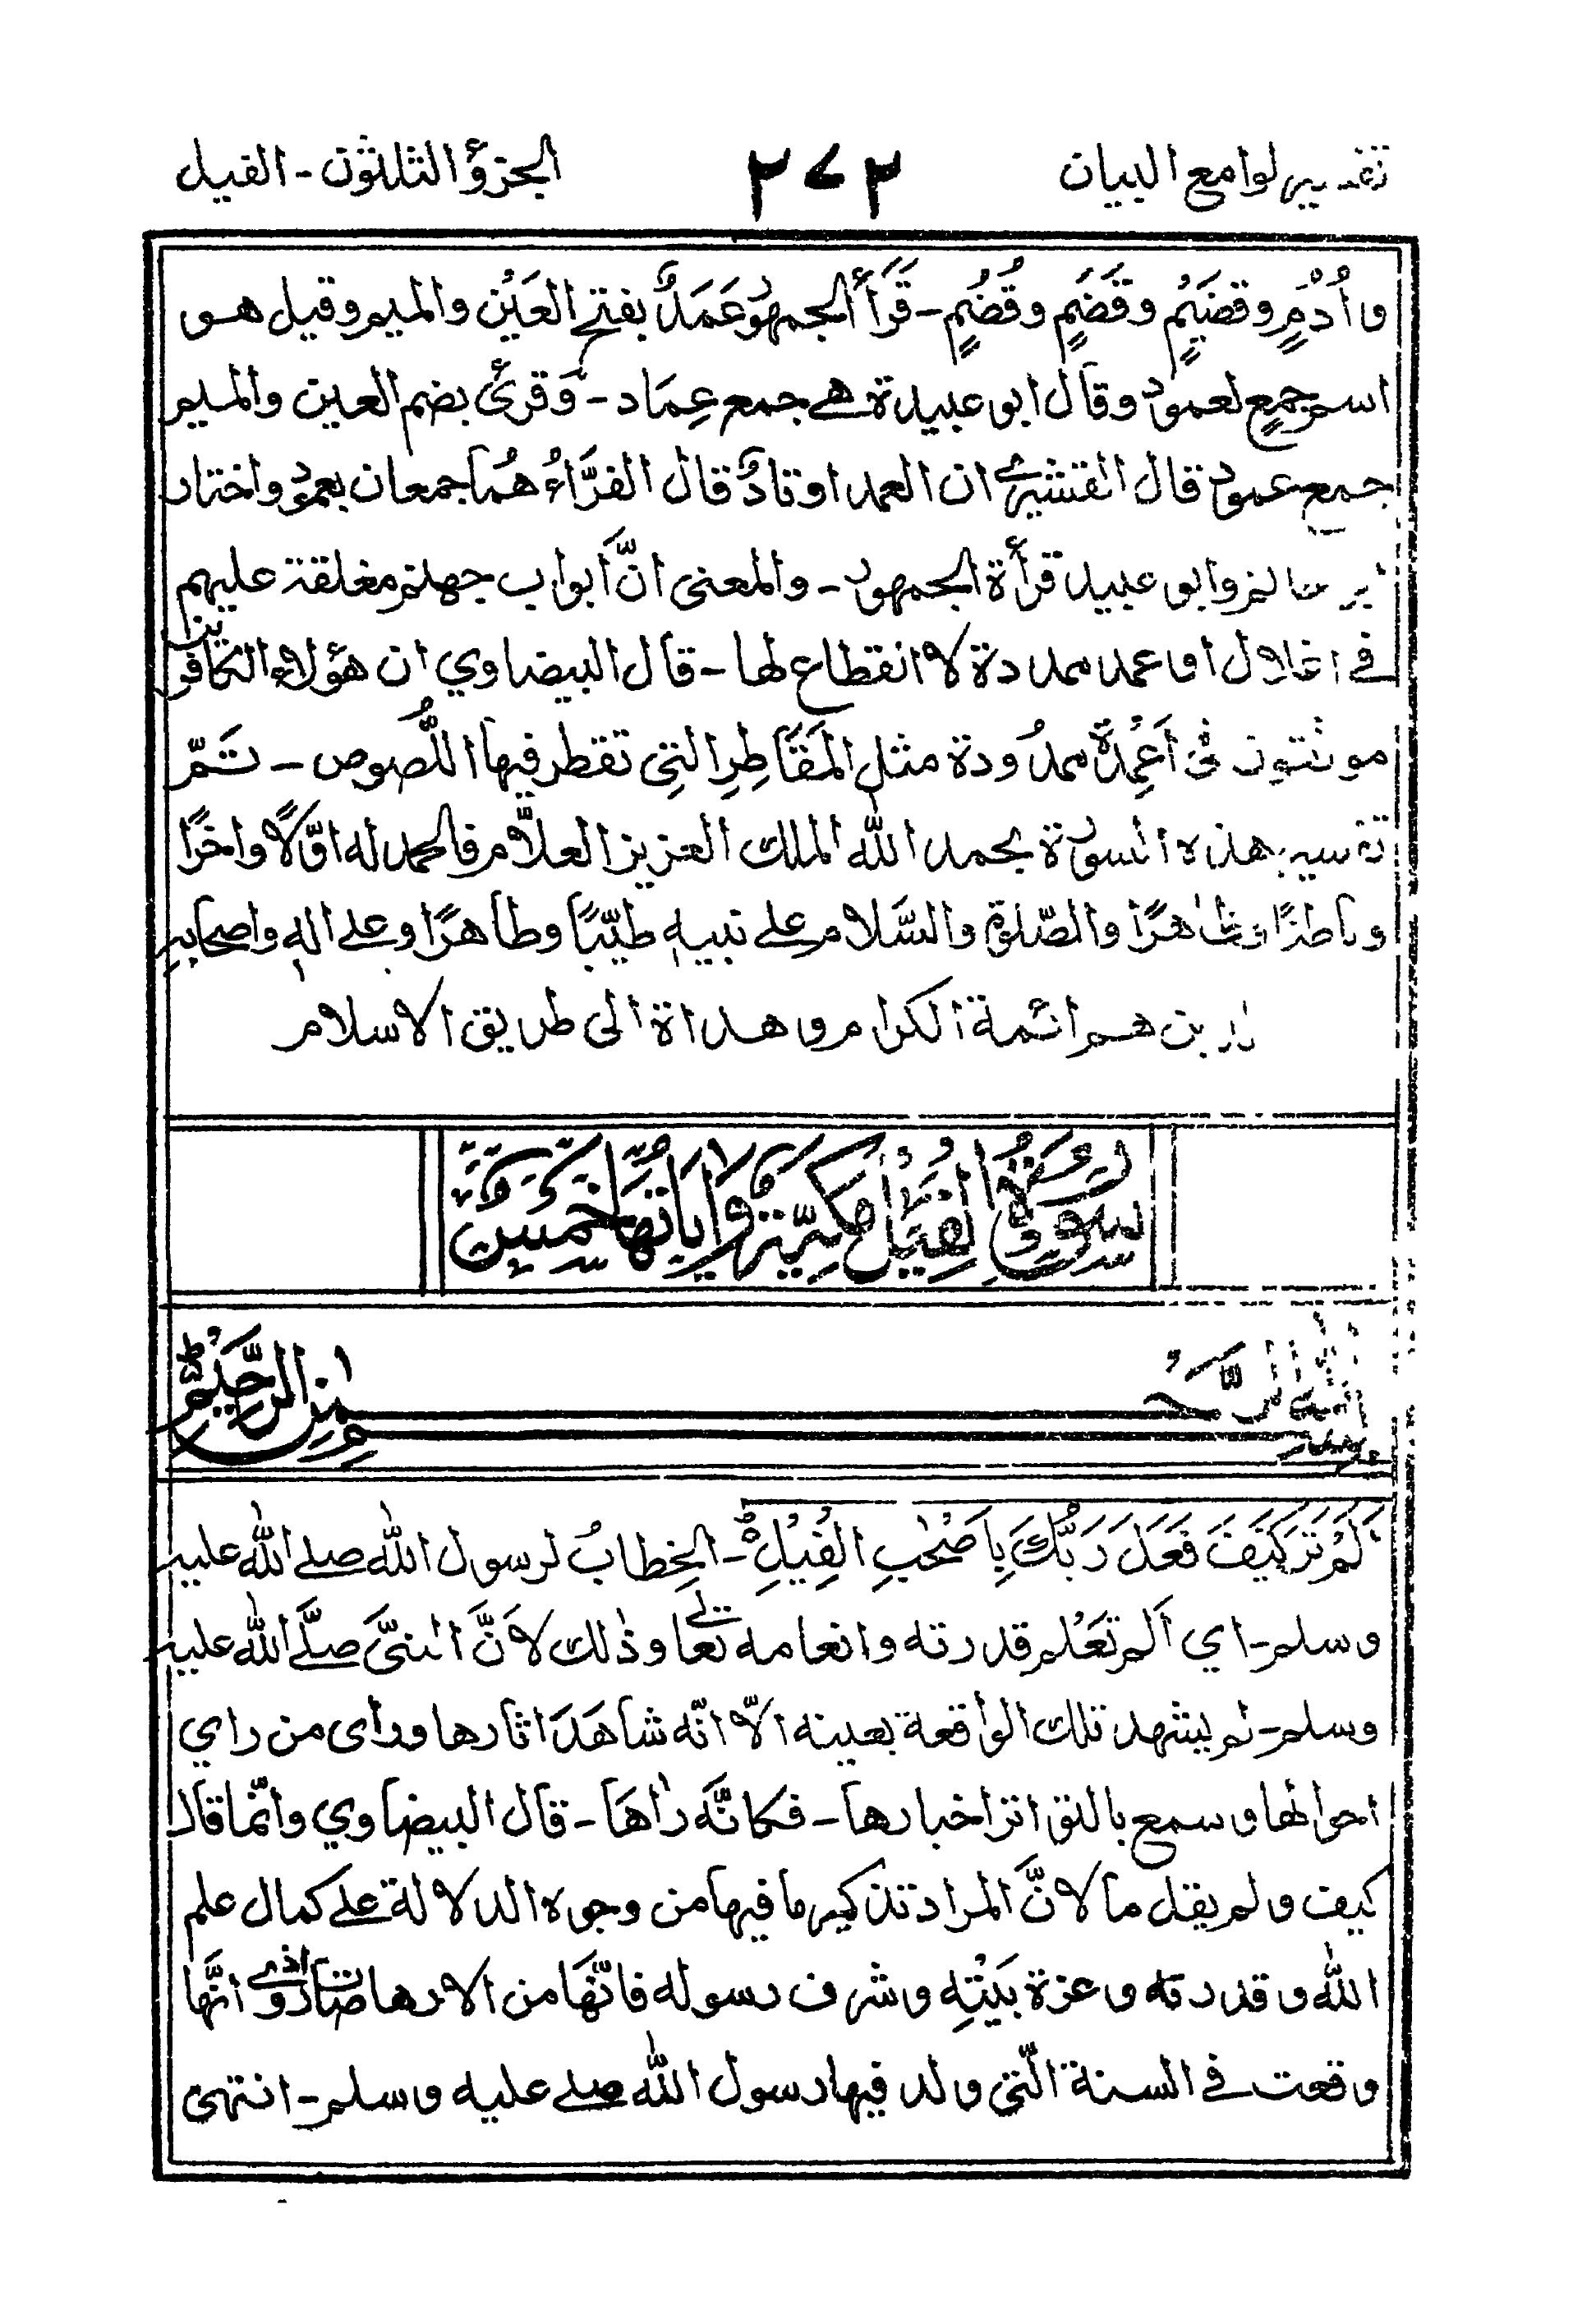 تفسير لوامع البيان
٢٧٢
الجزؤ الثلثون - الفيل
وأُدْمٍ وقضَيْمٍ وقَضَمٍ وقُضُمٍ - قَرَأَ الجمهورُ عَمَدٌ بفتح العَيْن والميم وقيل هو
اسم جمعٍ لعمود وقال ابو عبيدة هے جمع عِمَاد - وَقرئَ بضم العين والميم
جمع عمود قال القشيرے ان العمد اوتادٌ قال الفرَّاءُ هُما جمعان بعمود واختار
ابو حاتم وابو عبيد قرأة الجمهور - والمعنى انَّ ابواب جهنم مغلقة عليهم
فے اغلال او عمد ممددة لا انقطاع لها - قال البيضاوي ان هؤلاء الكافرين
موثقون فى أَعْمِدَةٌ ممدُودة مثل المَقَاطِرِ التِى تقطر فيها اللُّصوص - تَمّ
تفسير هذه السورة بحمد الله الملك العزيز العلّام فالحمد له اوّلًا واٰخرًا
وباطنًا وظاهرًا والصّلٰوة والسَّلام علے نبيه طيّبًا وطاهرًا وعلے اله واصحابه
الذين هم ائمة الكرام وهداة الى طريق الاسلام
سُوْرَةُ الْفِيْلِ مَكِّيَّةٌ وَّاٰيَاتُهَا خَمْسٌ
بسم الله الرَّحْمٰنِ الرَّحِيْمِ
اَلَمْ تَرَ كَيْفَ فَعَلَ رَبُّكَ بِاَصْحٰبِ الْفِيْلِ - الخِطابُ لرسول الله صلے الله عليه
وسلم - اي اَلم تَعْلم قدرته وانعامه تعالےٰ وذٰلك لاَنَّ النبىَّ صلَّے الله عليه
وسلم - لم يشهد تلك الواقعة بعينه الّا انّه شاهَدَ اثارها ورأى من راي
احوالها وسمع بالتواتر اخبارها - فكانَّه راٰهَا - قال البيضاوي وانّما قال
كيف ولم يقل ما لانَّ المراد تذكير ما فيها من وجوه الدلالة علے كمال علم
الله وقدرته وعزة بَيْتِه وشرف رسوله فانّهَا من الارهاصات اذ روے انَّها
وقعت فے السنة الّتى ولد فيها رسول الله صلے عليه وسلم - انتهى